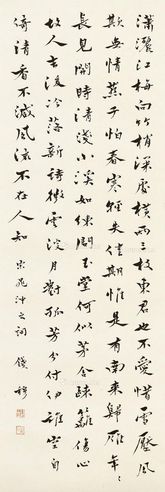 瀟灑江梅向竹梢深處橫兩三枝東君也不愛惜雪壓風
欺無情燕子怕春寒輕失佳期惟是有南來歸雁年々
長見開時清淺小溪如練問玉堂何似茅舍疎籬傷心
故人去後冷落新詩微雲淡月對孤芳分付伊誰空自
倚清香不減風流不在人知 宋晁沖之詞 錢穆